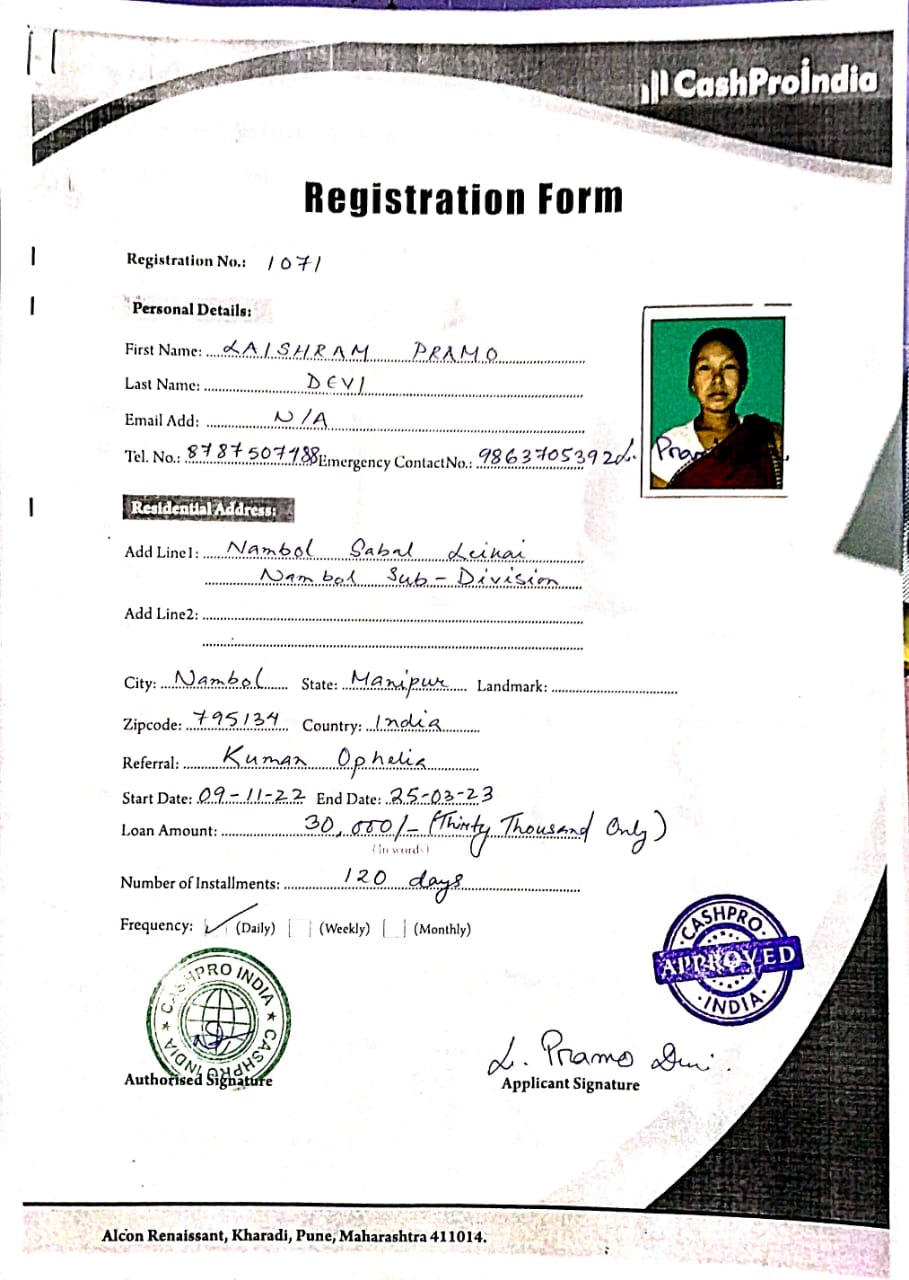 CashProIndia
Registration Form
Registration No.: 1071
Personal Details:
First Name: LAISHRAM PRAMO
Last Name: DEVI
Email Add: N/A
Tel. No.: 8787507988 Emergency Contact No.: 9863705392
L. Pramo
Residential Address:
Add Line1: Nambol Sabal Leikai
Nambol Sub-Division
Add Line2:
City: Nambol State: Manipur Landmark:
Zipcode: 795134 Country: India
Referral: Kuman Ophelia
Start Date: 09-11-22 End Date: 25-03-23
Loan Amount: 30,000/- (Thirty Thousand Only)
(in words)
Number of Installments: 120 days
Frequency: (Daily) (Weekly) (Monthly)
CASHPRO
APPROVED
INDIA
CASHPRO INDIA ★ CASHPRO INDIA ★
L. Pramo Devi.
Authorised Signature Applicant Signature
Alcon Renaissant, Kharadi, Pune, Maharashtra 411014.